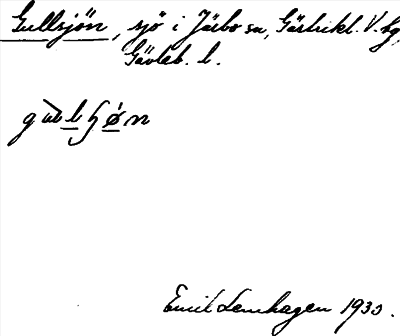 Gullsjön, sjö i Järbo sn, Gästrikl. V. hg,
Gävleb. l.
Emil Lenhagen 1933.